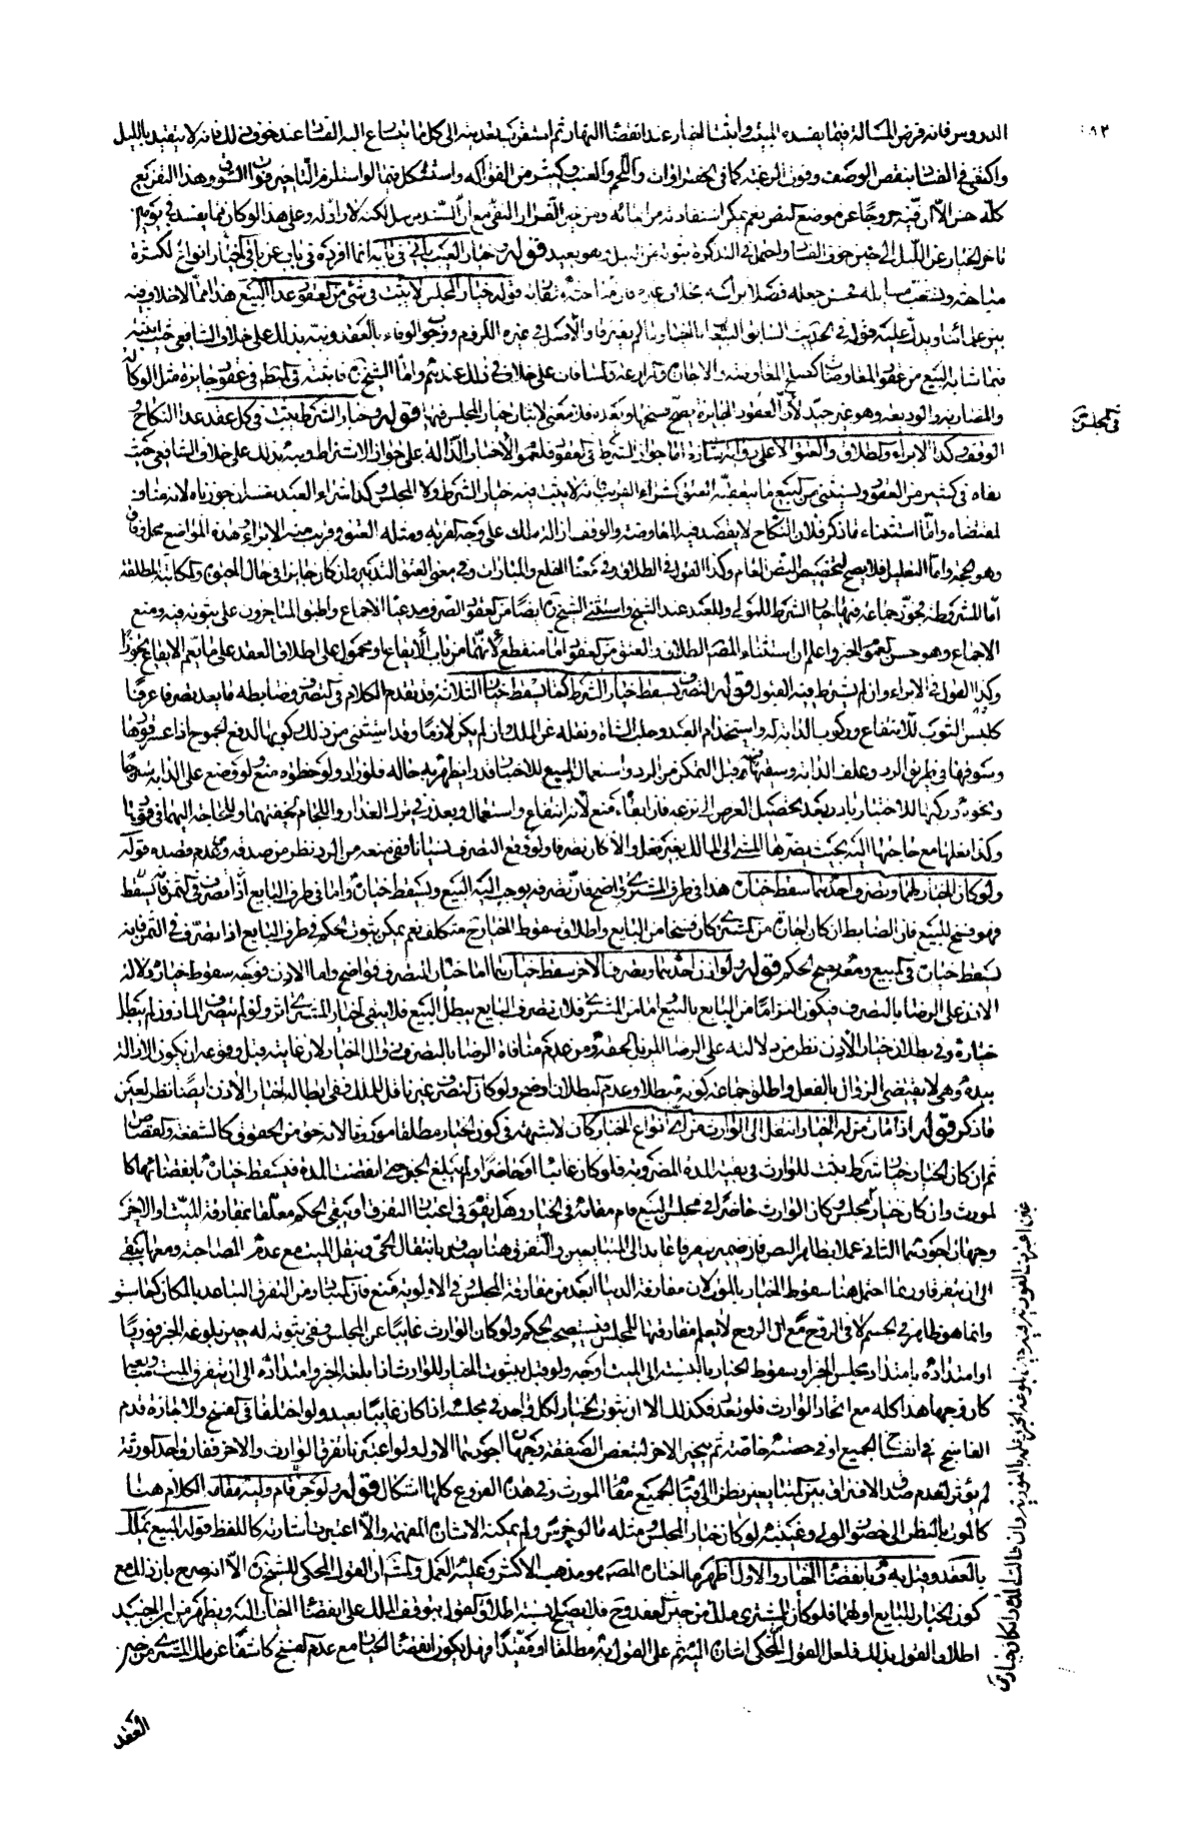 الدروس فانه فرض المسألة فيما يفسده المبيت واثبت الخيار عند انقضاء النهار ثم استقرب تعديته الى كل ما يتسارع اليه الفساد عند خوف ذلك فانه لا يتقيد بالليل
واكتفى في الفساد بنقص الوصف وفوت الرغبة كما في الخضراوات واللحم والعنب وكثير من الفواكه واستشكل فيما لو استلزم التأخير فوات السوق وهذا التفريع
كله حسن الا ان فيه خروجا عن موضع النص نعم يمكن استفادته من خبر الضرار المنفي مع ان السند مرسل لكنه لا راد له وعلى هذا لو كان مما يفسد في يومين
تأخر الخيار عن الليل الى حين خوف الفساد واحتمل في التذكرة ثبوته من الليل وهو بعيد قوله وخيار العيب يأتي في بابه انما افرده في باب عن باقي اختياراته لكثرة
مباحثه وتشعب مسائله فحسن جعله فصلا برأسه بخلاف غيره فان مباحثه قوله خيار المجلس لا يثبت في شيء من العقود عدا البيع هذا مما لا خلاف فيه
بين علمائنا ويدل عليه قوله في الحديث السابق البيعان بالخيار ما لم يفترقا والاصل في غيره اللزوم ووجوب الوفاء بالعقد ونبه بذلك على خلاف الشافعي حيث اثبته
فيما شابه البيع من عقود المعاوضات كصلح المعاوضة والاجارة والمزارعة والمساقات على خلاف في ذلك عندهم واما الشيخ فاثبته في المبسوط في عقود جايزة مثل الوكالة
والمضاربة والوديعة وهو غير جيد لان العقود الجايزة يصح فسخها فلا معنى لاثبات خيار المجلس فيها قوله وخيار الشرط يثبت في كل عقد عدا النكاح
الوقف وكذا الابراء والطلاق والعتق الا على رواية شاذة اما جواز الشرط في العقود فلعموم الاخبار الدالة على جواز الاشتراط ونبه بذلك على خلاف الشافعي حيث
نفاه في كثير من العقود ويستثنى من البيع ما يتعقبه العتق كشراء القريب فانه لا يثبت فيه خيار الشرط ولا المجلس وكذا شراء العبد نفسه ان جوزناه لانه مناف
لمقتضاه واما استثناء ما ذكر فلان النكاح لا يقصد فيه المعاوضة والوقف ازالة ملك على وجه القربة ومثله العتق وقريب منه الابراء هذه المواضع محل وفاق
وهو الحجة واما التعليل فلا يصلح لتخصيص النص العام وكذا القول في الطلاق وفي معناه الخلع والمبارات وفي معنى العتق التدبير وان كان جايزا في حال الحيوة والمكاتبة المطلقة
اما المشروطة فجوز جماعة فيها خيار الشرط للمولى وللعبد عند الشيخ واستثنى الشيخ ايضا من العقود الصرف مدعيا الاجماع واطبق المتاخرون على ثبوته فيه ومنع
الاجماع وهو حسن لعموم الخبر واعلم ان استثناء المصنف الطلاق والعتق من العقود اما منقطع لانهما من باب الايقاع او محمول على اطلاق العقد على ما يعم الايقاع تجوزا
وكذا القول في الابراء وان لم يشترط فيه القبول قوله التصرف يسقط خيار الشرط كما يسقط خيار الثلاثة قد تقدم الكلام في التصرف وضابطه ما يعد تصرفا عرفا
كلبس الثوب للانتفاع وركوب الدابة له واستخدام العبد وحلب الشاة ونقله عن الملك وان لم يكن لازما وقد استثنى من ذلك ركوبها لدفع الجموح اذا عسر قودها
وسوقها في طريق الرد وعلف الدابة وسقيها فيه قبل التمكن من الرد واستعمال المبيع للاختبار قدرا يظهر به حاله فلو زاد ولو خطوة منع ولو وضع على الدابة سرجا
ونحوه وركبها للاختبار بادر بعد تحصيل الغرض الى نزعه فان ابقاه منع لانه انتفاع واستعمال ويعذر في ترك العذار واللجام لخفتهما وللحاجة اليهما في قودها
وكذا نعلها مع حاجتها اليه بحيث يضرها المشي الى المالك بغير نعل والا كان تصرفا ولو وقع التصرف نسيانا ففي منعه من الرد نظر من صدقه وعدم قصده قوله
ولو كان الخيار لهما وتصرف احدهما سقط خياره هذا في طرف المشتري واضح فان تصرفه يوجب البيع ويسقط خياره واما في طرف البايع اذا تصرف في الثمن فانه يسقط
فهو فسخ للبيع فان الضابط ان كان اجازة من المشتري كان فسخا من البايع واطلاق سقوط الخيار ح متكلف نعم يمكن ثبوت الحكم في طرف البايع اذا تصرف في الثمن فانه
يسقط خياره في المبيع ومعه يصح الحكم قوله ولو اذن احدهما وتصرف الاخر سقط خيارهما اما خيار المتصرف فواضح واما الاذن فوجه سقوط خياره دلالة
الاذن على الرضا بالتصرف فيكون التزاما من البايع بالبيع اما من المشتري فلان تصرف البايع يبطل البيع فلا يبقى لخيار المشتري اثر ولو لم يتصرف الماذون لم يبطل
خياره وفي بطلان خيار الآذن نظر من دلالته على الرضا المزيل لحقه ومن عدم منافاة الرضا بالتصرف زوال الخيار لان غايته قبل وقوعه ان يكون الازالة
بيده وهي لا يقتضي الزوال بالفعل واطلق جماعة كونه مبطلا وعدم البطلان اوضح ولو كان التصرف غير ناقل للملك ففي ابطاله لخيار الآذن ايضا نظر لعين
ما ذكر قوله اذا مات من له الخيار انتقل الى الوارث من اي انواع الخيار كان لا شبهة في كون الخيار مطلقا موروثا لانه حق من الحقوق كالشفعة والقصاص
ثم ان كان الخيار خيار شرط يثبت للوارث في بقية المدة المضروبة فلو كان غائبا او حاضرا ولم يبلغه الخبر حتى انقضت المدة فيسقط خياره بانقضائها كا
لمورث وان كان خيار مجلس وكان الوارث حاضرا في مجلس البيع قام مقامه في الخيار وهل يقوم في اعتبار التفرق او يبقى الحكم معلقا بمفارقة الميت او الاخر
وجهان اجودهما الثاني عملا بظاهر النص فان ضمير يفترقا عايد الى المتبايعين والتفرق هنا يصدق بانتقال الحي وبنقل الميت مع عدم المصاحبة ومعها يبقى
الى ان يتفرقا وربما احتمل هنا سقوط الخيار بالموت لان مفارقة الدنيا ابعد من مفارقة المجلس وفي الاولوية منع فان المتبادر من التفرق التباعد بالمكان كما سبق
وانما هو ظاهر في الجسم لا في الروح مع ان الروح لا يعلم مفارقتها للمجلس فيستصحب الحكم ولو كان الوارث غايبا عن المجلس ففي ثبوته له حين بلوغه الخبر فوريا
او امتداده بامتداد مجلس الخبر او سقوط الخيار بالنسبة الى الميت اوجه ولو قيل بثبوت الخيار للوارث اذا بلغه الخبر وامتداده الى ان يتفرق الميت ومبايعه
كان وجها هذا كله مع اتحاد الوارث فلو تعدد فكذلك الا ان ثبوت الخيار لكل واحد في مجلسه اذا كان غايبا بعيد ولو اختلفا في الفسخ والاجازة قدم
الفاسخ وفي انفساخ الجميع او في حصته خاصة ثم يتخير الاخر لتبعض الصفقة وجهان اجودهما الاول ولو اعتبرنا تفرق الوارث والاخر ففارق احد الورثة
لم يؤثر لعدم صدق الافتراق بين المتبايعين نظرا الى قيام الجميع مقام المورث وفي هذه الفروع كلها اشكال قوله ولو جن قام وليه مقامه الكلام هنا
كالموت بالنظر الى حضور الولي وغيبته لو كان خيار المجلس ومثله ما لو خرس ولم يمكنه الاشارة المفهمة والا اعتبرت اشارته كاللفظ قوله المبيع يملك
بالعقد وقيل به وبانقضاء الخيار والاول اظهر ما اختاره المصنف هو مذهب الاكثر وعليه العمل والمشهور ان القول المحكي للشيخ الا انه صرح بان ذلك مع
كون الخيار للبايع او لهما فلو كان للمشتري ملك من حين العقد وح فلا يصلح نسبة اطلاق القول بتوقف الملك على انقضاء الخيار اليه ويظهر من ابن الجنيد
اطلاق القول بذلك فلعل القول المحكي اشارة اليه ثم على القول به مطلقا او مقيدا فهل يكون انقضاء الخيار مع عدم الفسخ كاشفا عن ملك المشتري من حين
العقد